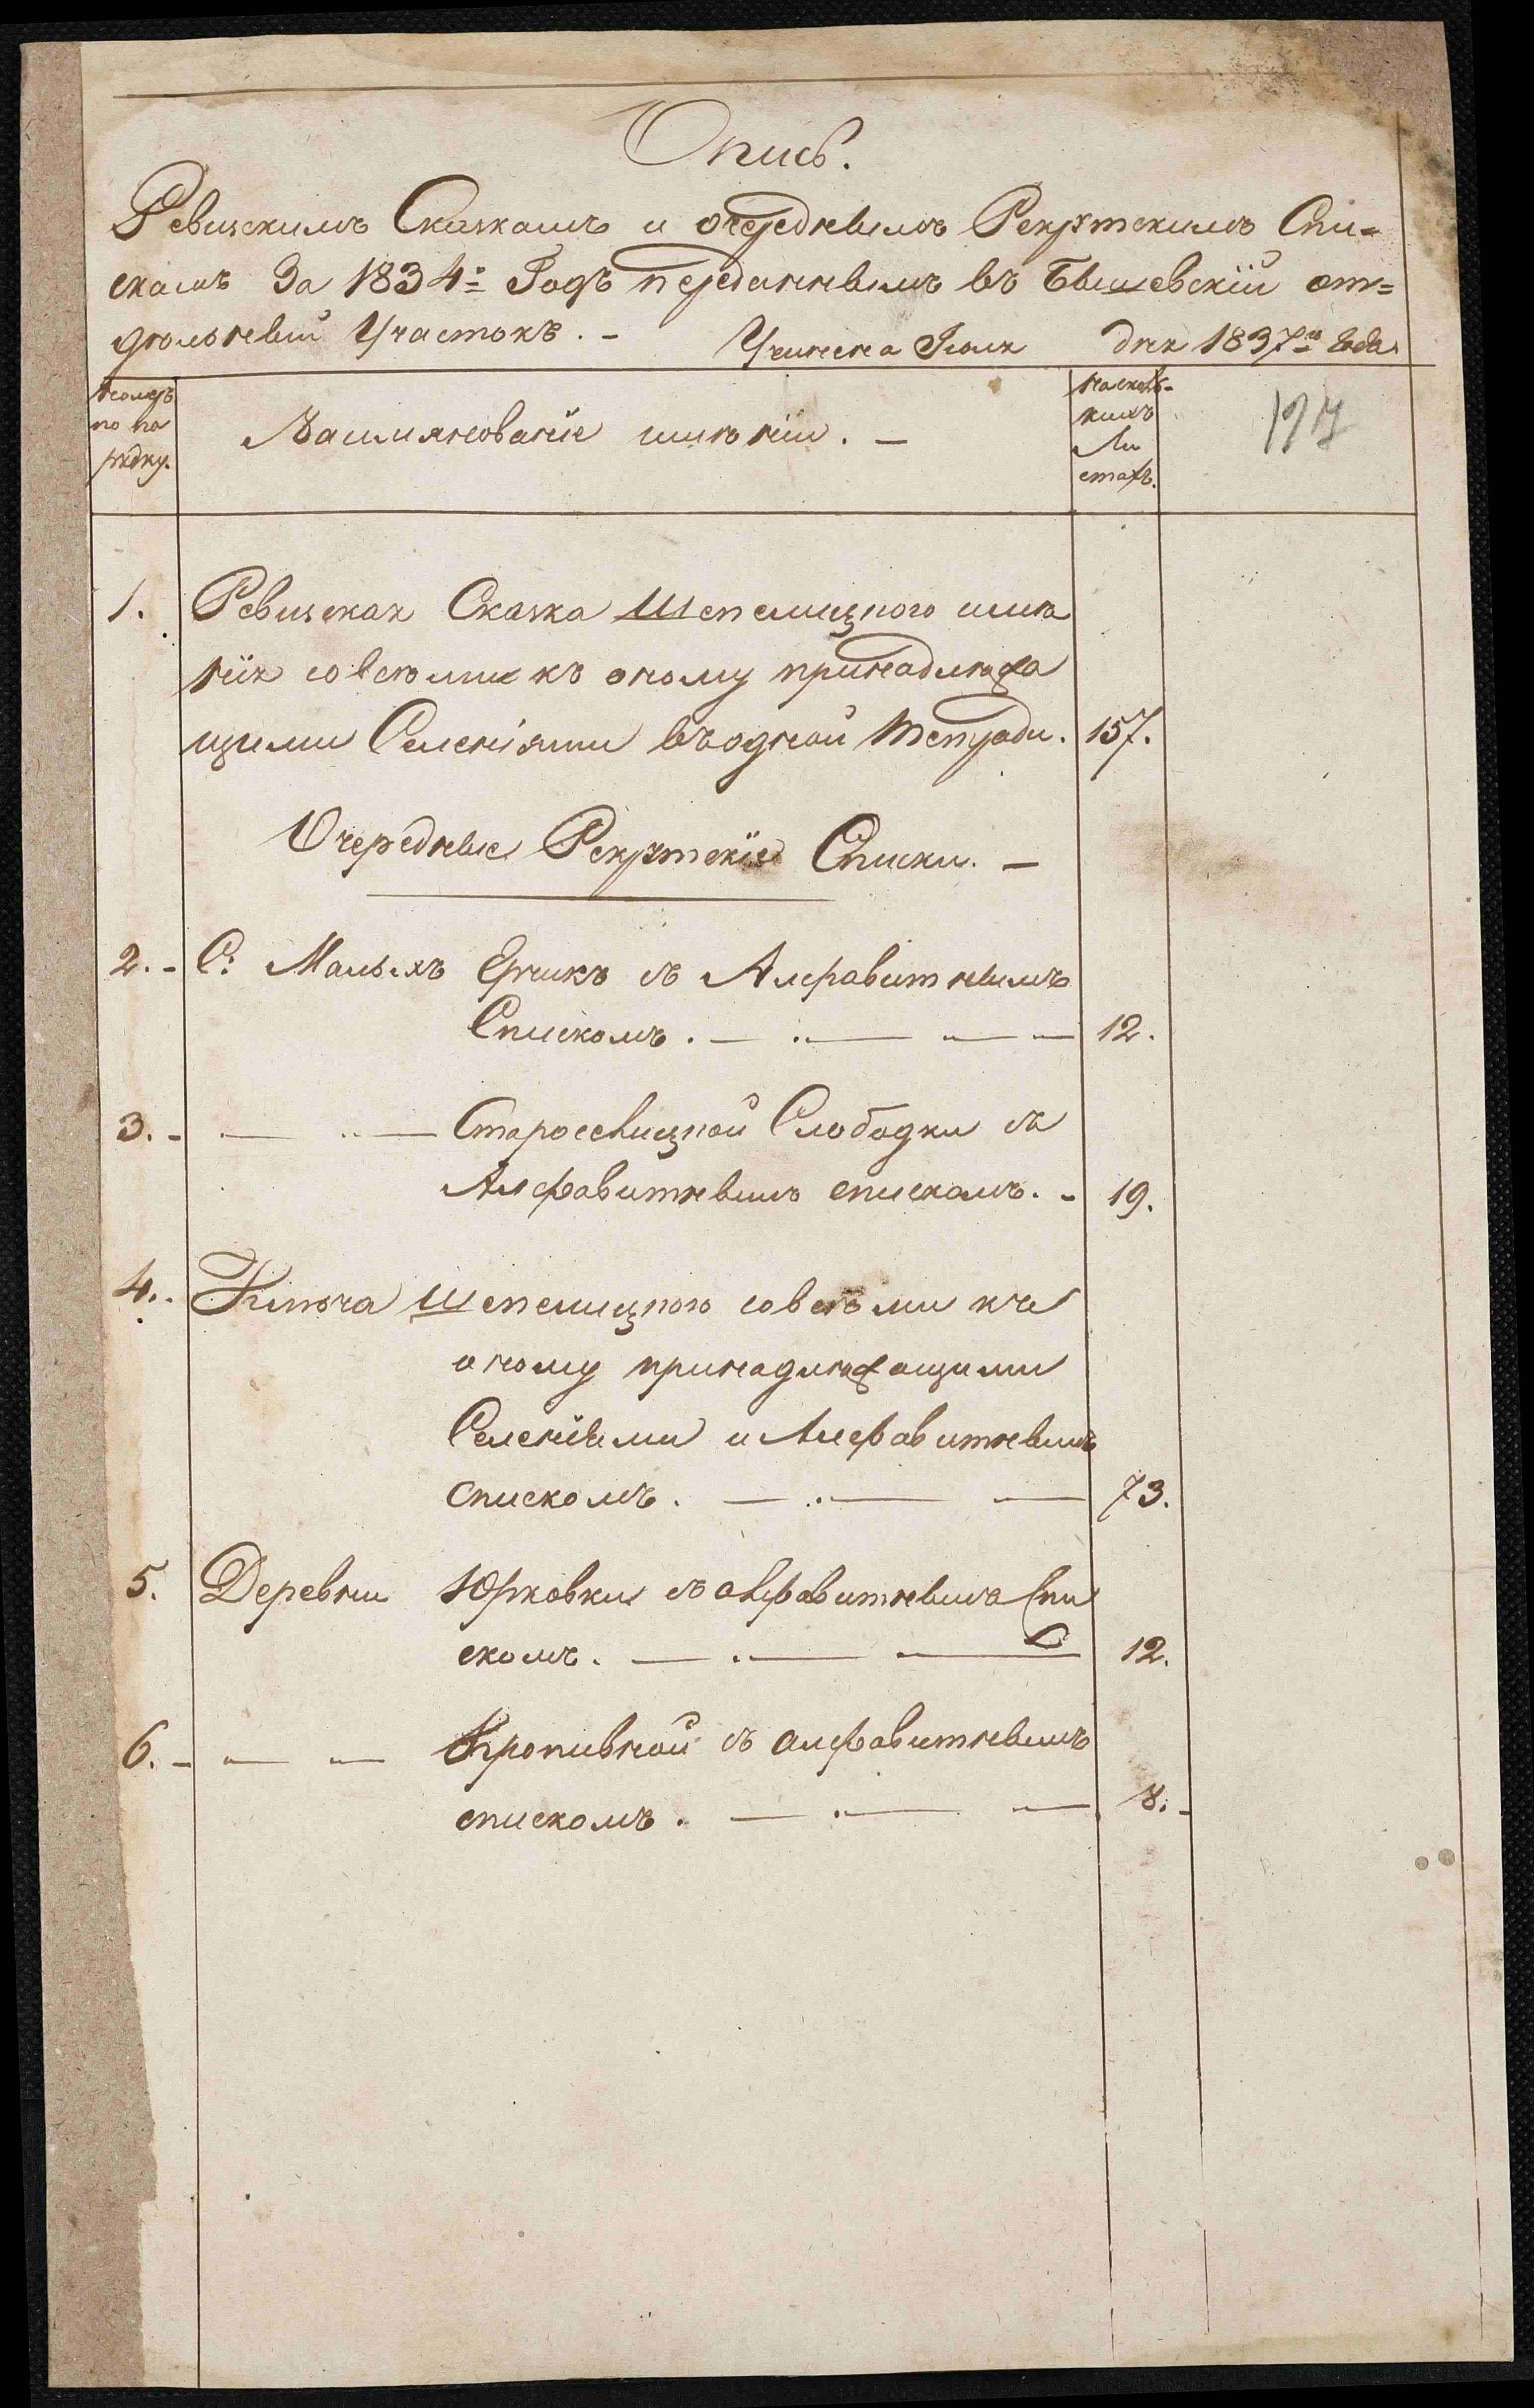 Опись.
Ревизскимъ Сказкамъ и очереднымъ Рекрутскимъ Спи=
скамъ За 1834= Годъ переданнымъ въ Бышевскій от=
дѣльный Участокъ. -
Учинена Іюля дня 1837го Года
Номеръ
по по
рядку.
Наименованіе имѣній. -
На сколь-
кихъ
Ли
стахъ.
1. Ревизская Сказка Шепелицкого имѣ
нія совсѣми къ оному принадлежа
щими Селеніями въ одной Тетради. 157.
Очередные Рекрутскіе Списки. -
2. - С: Малыхъ Ерчикъ съ Алфавитнымъ
Спискомъ. - 12.
3. - Слободки съ
Алфавитнымъ спискомъ. - 19.
4. - Ключа Шепелицкого совсѣми къ
оному принадлежащими
Селеніями и Алфавитнымъ
спискомъ. - 73.
5. Деревни Юрковки съ алфавитнымъ Спи
скомъ. - 12.
6. - Кропивной съ алфавитнымъ
спискомъ. - 8. -